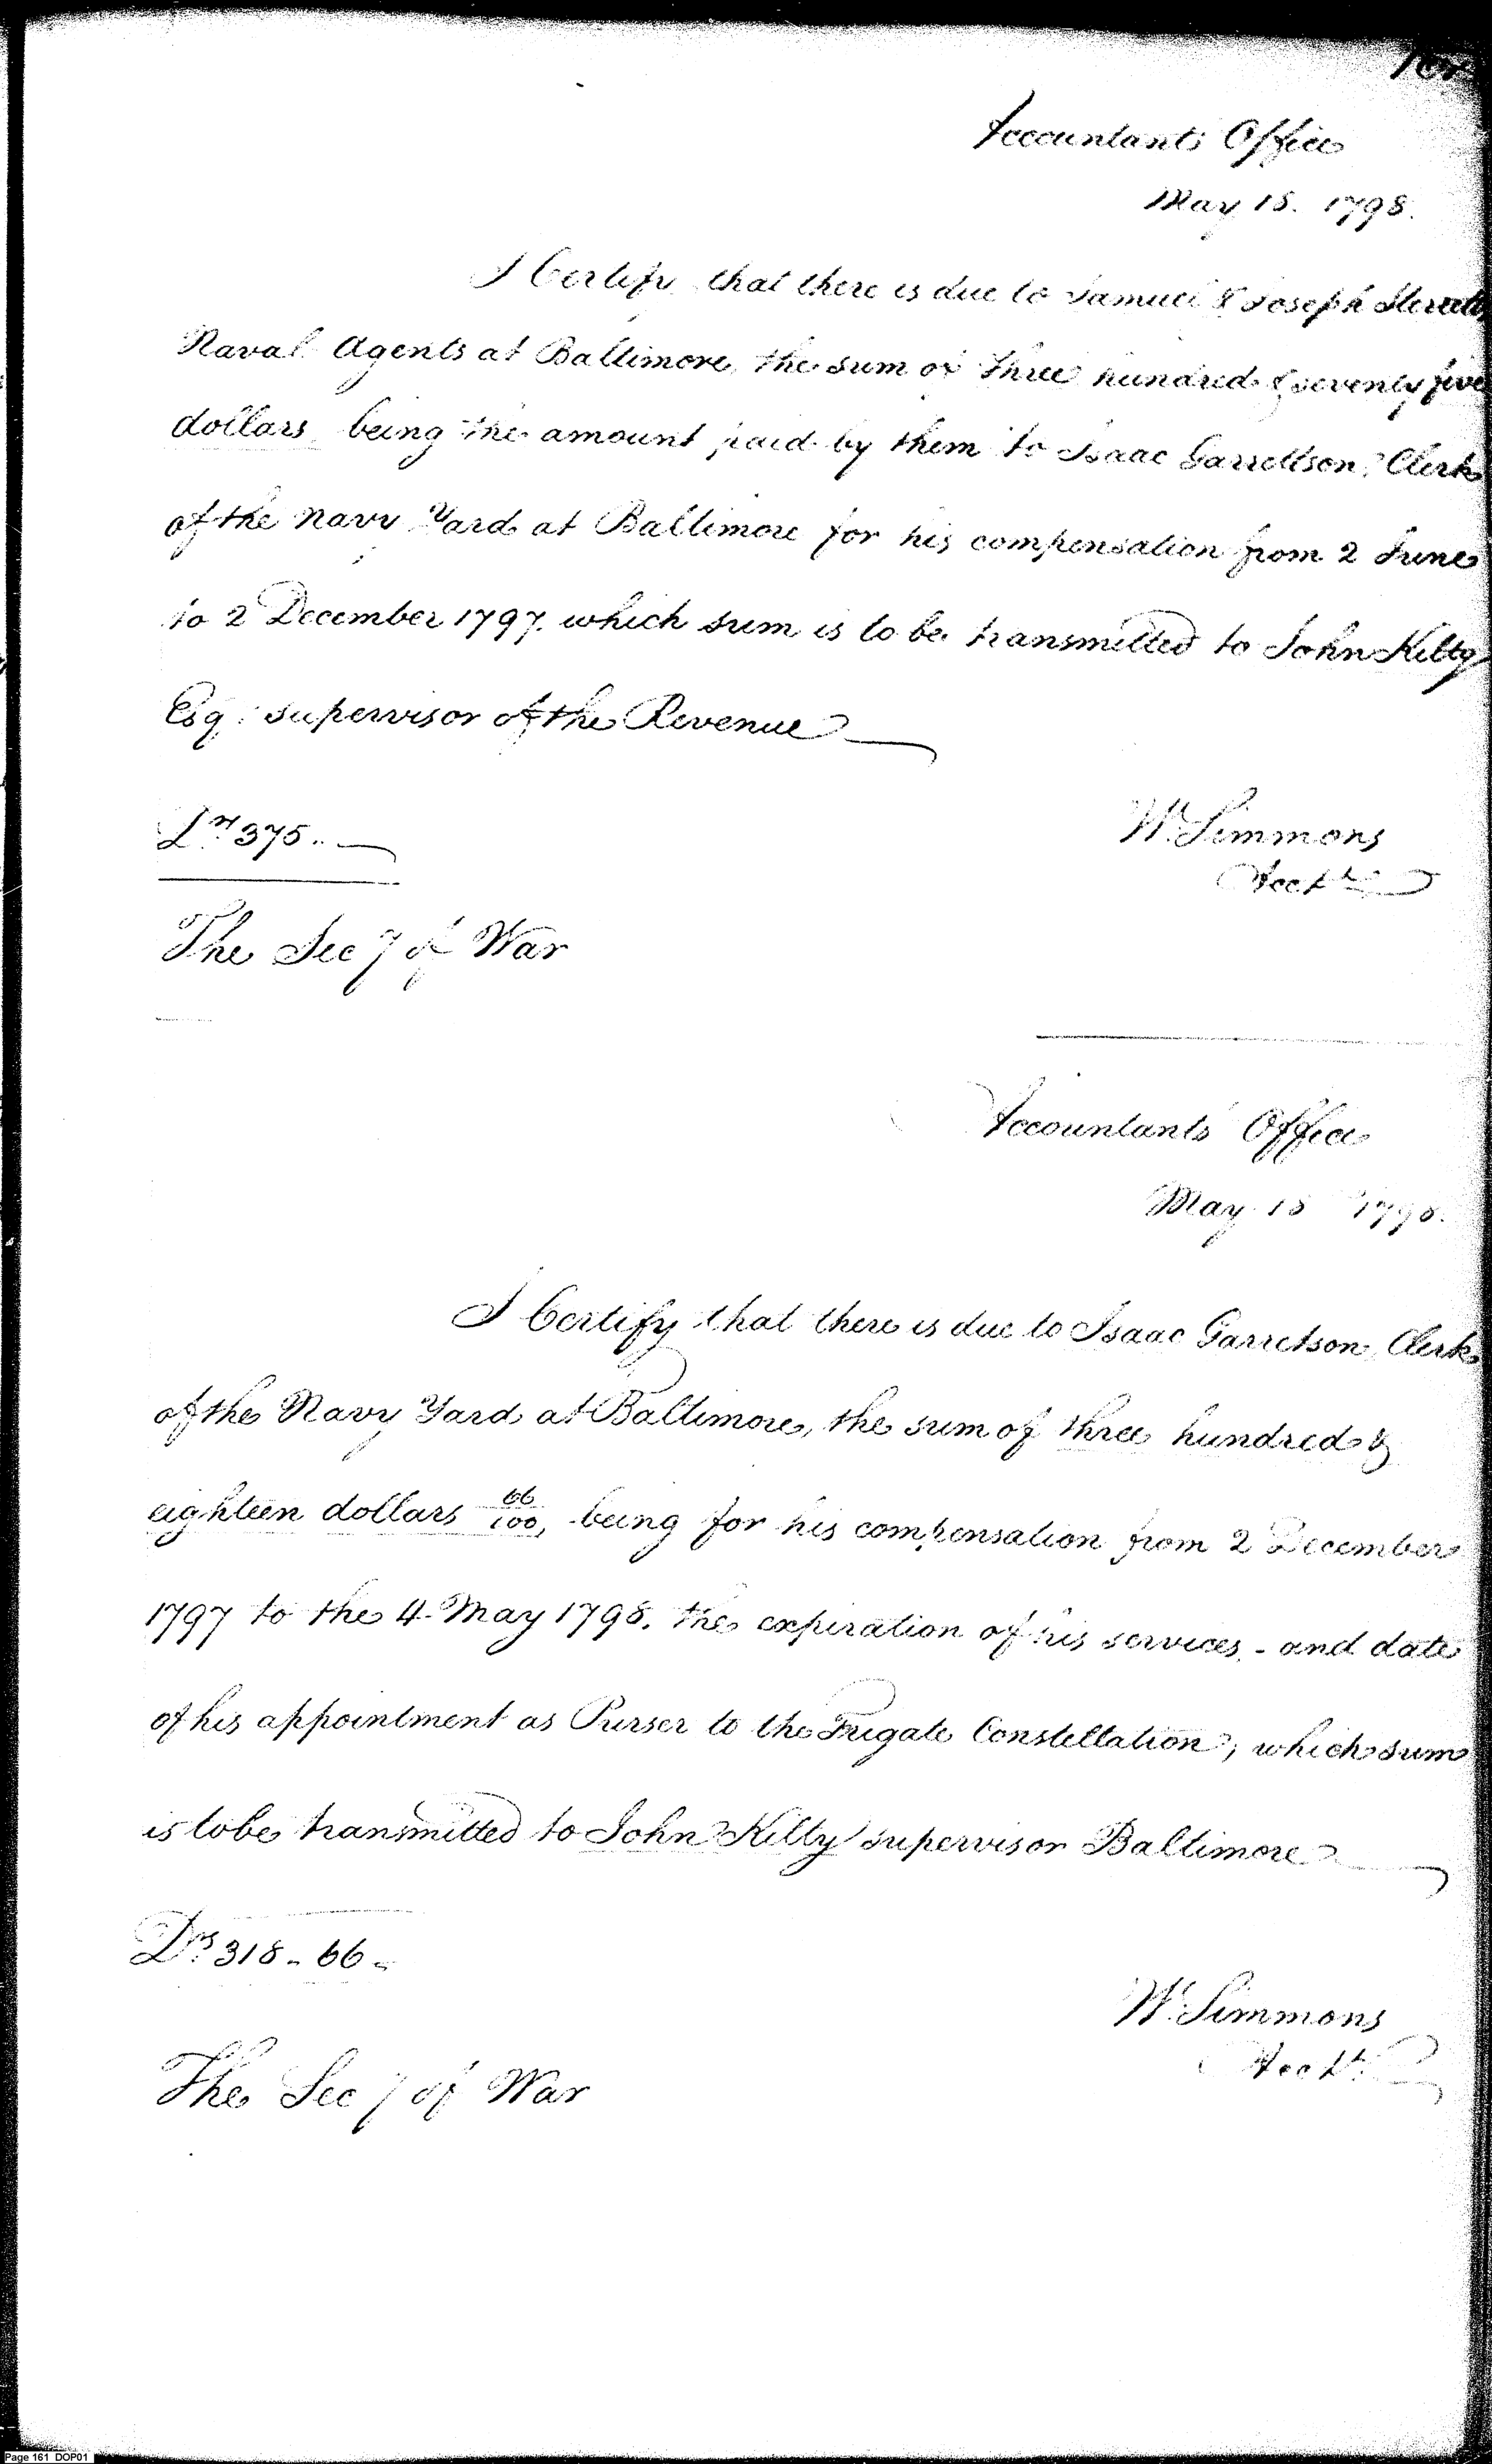 Accountants Office
May 18. 1798.
I Certify that there is due to Samuel & Joseph Sterett
Naval Agents at Baltimore, the sum of three hundred & seventy five
dollars being the amount paid by them to Isaac Garrettson, Clerk
of the Navy Yard at Baltimore for his compensation from 2 June
to 2 December 1797. which sum is to be transmitted to John Kilty
Esq: supervisor of the Revenue
Drs 375..
W. Simmons
Acct
The Secy of War
Accountants Office
May 18 1798.
I Certify that there is due to Isaac Garretson, Clerk
of the Navy Yard at Baltimore, the sum of three hundred &
eighteen dollars 66/100, being for his compensation from 2 December
1797 to the 4 May 1798. the expiration of his services - and date
of his appointment as Purser to the Frigate Constellation, which sum
is to be transmitted to John Kilty supervisor Baltimore
Drs 318-66-
W. Simmons
Acct
The Secy of War
Page 161 DOP01